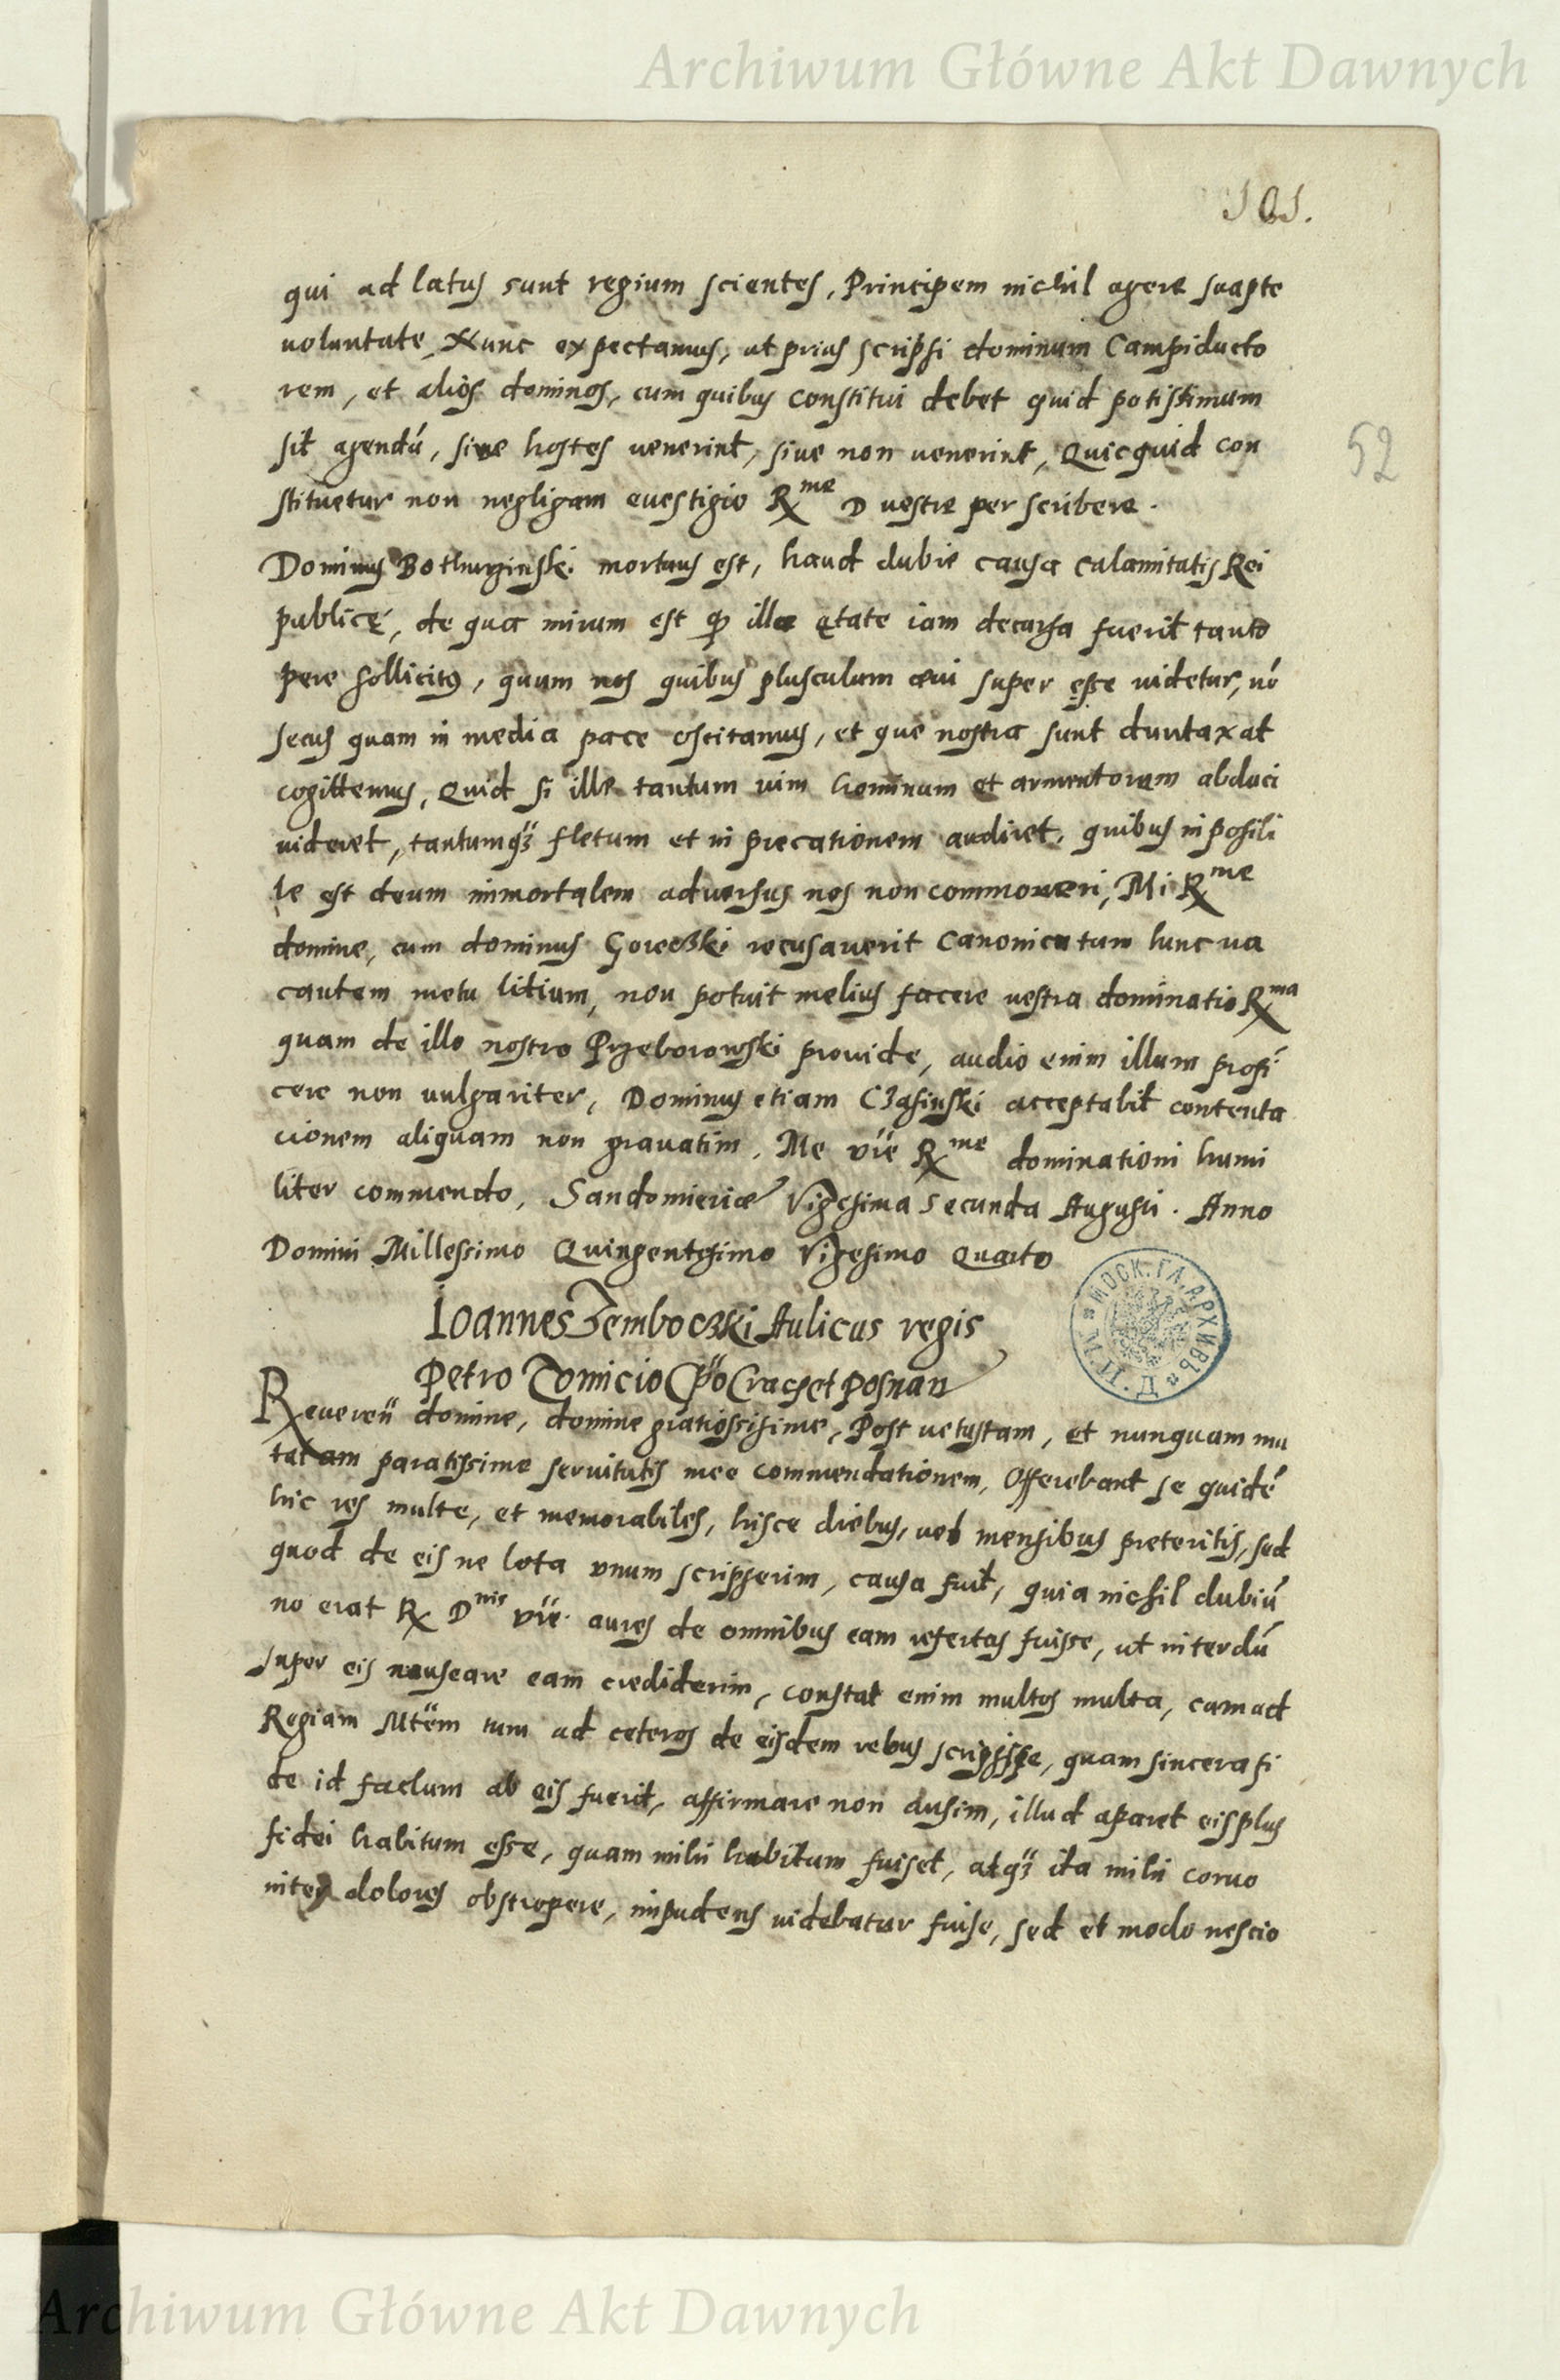 Archiwum Główne Akt Dawnych
101.
qui ad latus sunt regium scientes, Principem nichil agere suapte
uoluntate, Nunc expectamus, ut prius scripsi dominum Campiducto
rem, et alios dominos, cum quibus constitui debet quid potissimum
sit agendū, siue hostes uenerint, siue non uenerint, Quicquid con
stituetur non negligam euestigio Rme D uestre perscribere.
52
Dominus Bothurzinski mortuus est, haud dubie causa calamitatis Rei
publicę, de qua mirum est ꝙ illa ętate iam decursa fuerit tanto
pere sollicitus, quum nos quibus plusculum aeui super esse uidetur, nō
secus quam in media pace oscitamus, et que nostra sunt duntaxat
cogittemus, Quid si ille tantum uim hominum et armentorum abduci
uideret, tantumqȝ fletum et in precationem audiret, quibus inposibi
le est deum immortalem aduersus nos non commoueri, Mi Rme
domine, cum dominus Goreczki recusauerit Canonicatum hunc ua
cantem metu litium, non potuit melius facere uestra dominatio Rma
quam de illo nostro Przeborowski prouide, audio enim illum profi
cere non uulgariter, Dominus etiam Czasinski acceptabit contenta
cionem aliquam non grauatim. Me vre Rme dominationi humi
liter commendo, Sandomieriae Vigesima secunda Augusti. Anno
Domini Millessimo Quingentesimo Vigesimo Quarto
Ioannes Zemboczki Aulicus regis
Petro Tomicio Epo Crac et Posnan
Reueren domine, domine gratiossisime, Post uetustam, et nunquam mu
tatam paratissime seruitutis mee commendationem, Offerebant se quidē
hic res multe, et memorabiles, hisce diebus, uel mensibus preteritis, sed
quod de eis ne Iota vnum scripserim, causa fuit, quia nichil dubiū
no erat R Dnis vre aures de omnibus eam refertas fuisse, ut interdū
super eis nauseare eam crediderim, constat enim multos multa, cam ad
Regiam Mtem tum ad ceteros de eisdem rebus scripsisse, quam sincera fi
de id factum ab eis fuerit, affirmare non ausim, illud aparet eis plus
fidei habitum esse, quam mihi habitum fuiset, atqȝ ita mihi coruo
inter dolores obstropere, impudens uidebatur fuise, sed et modo nescio
МОСК. ГЛ. АРХИВЪ
Archiwum Główne Akt Dawnych